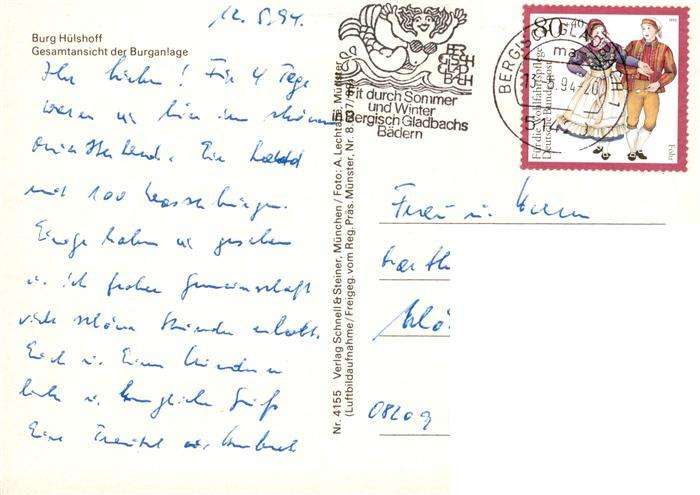 12.5.94.
Burg Hülshoff
Gesamtansicht der Burganlage
Ihr Lieben! Für 4 Tage
waren wir hier im schönen
Münsterland. Ein Land
mit 100 Wasserburgen.
Einige haben wir gesehen
u. in froher Gemeinschaft
viele schöne Stunden erlebt.
Euch u. Euren Kindern
liebe u. herzliche Grüße
Eure
Nr. 4155 Verlag Schnell & Steiner, München / Foto: A. Lechtape, Münster
(Luftbildaufnahme / Freigeg. vom Reg. Präs. Münster, Nr.
BER
GISCH
GLAD
BACH
Fit durch Sommer
und Winter
in Bergisch Gladbachs
Bädern
BERGISCH GLADBACH 1
13.5.94-20
51
80
+40
Für die Wohlfahrtspflege
Deutsche Bundespost
Föhr
Frau u. Herrn
08209